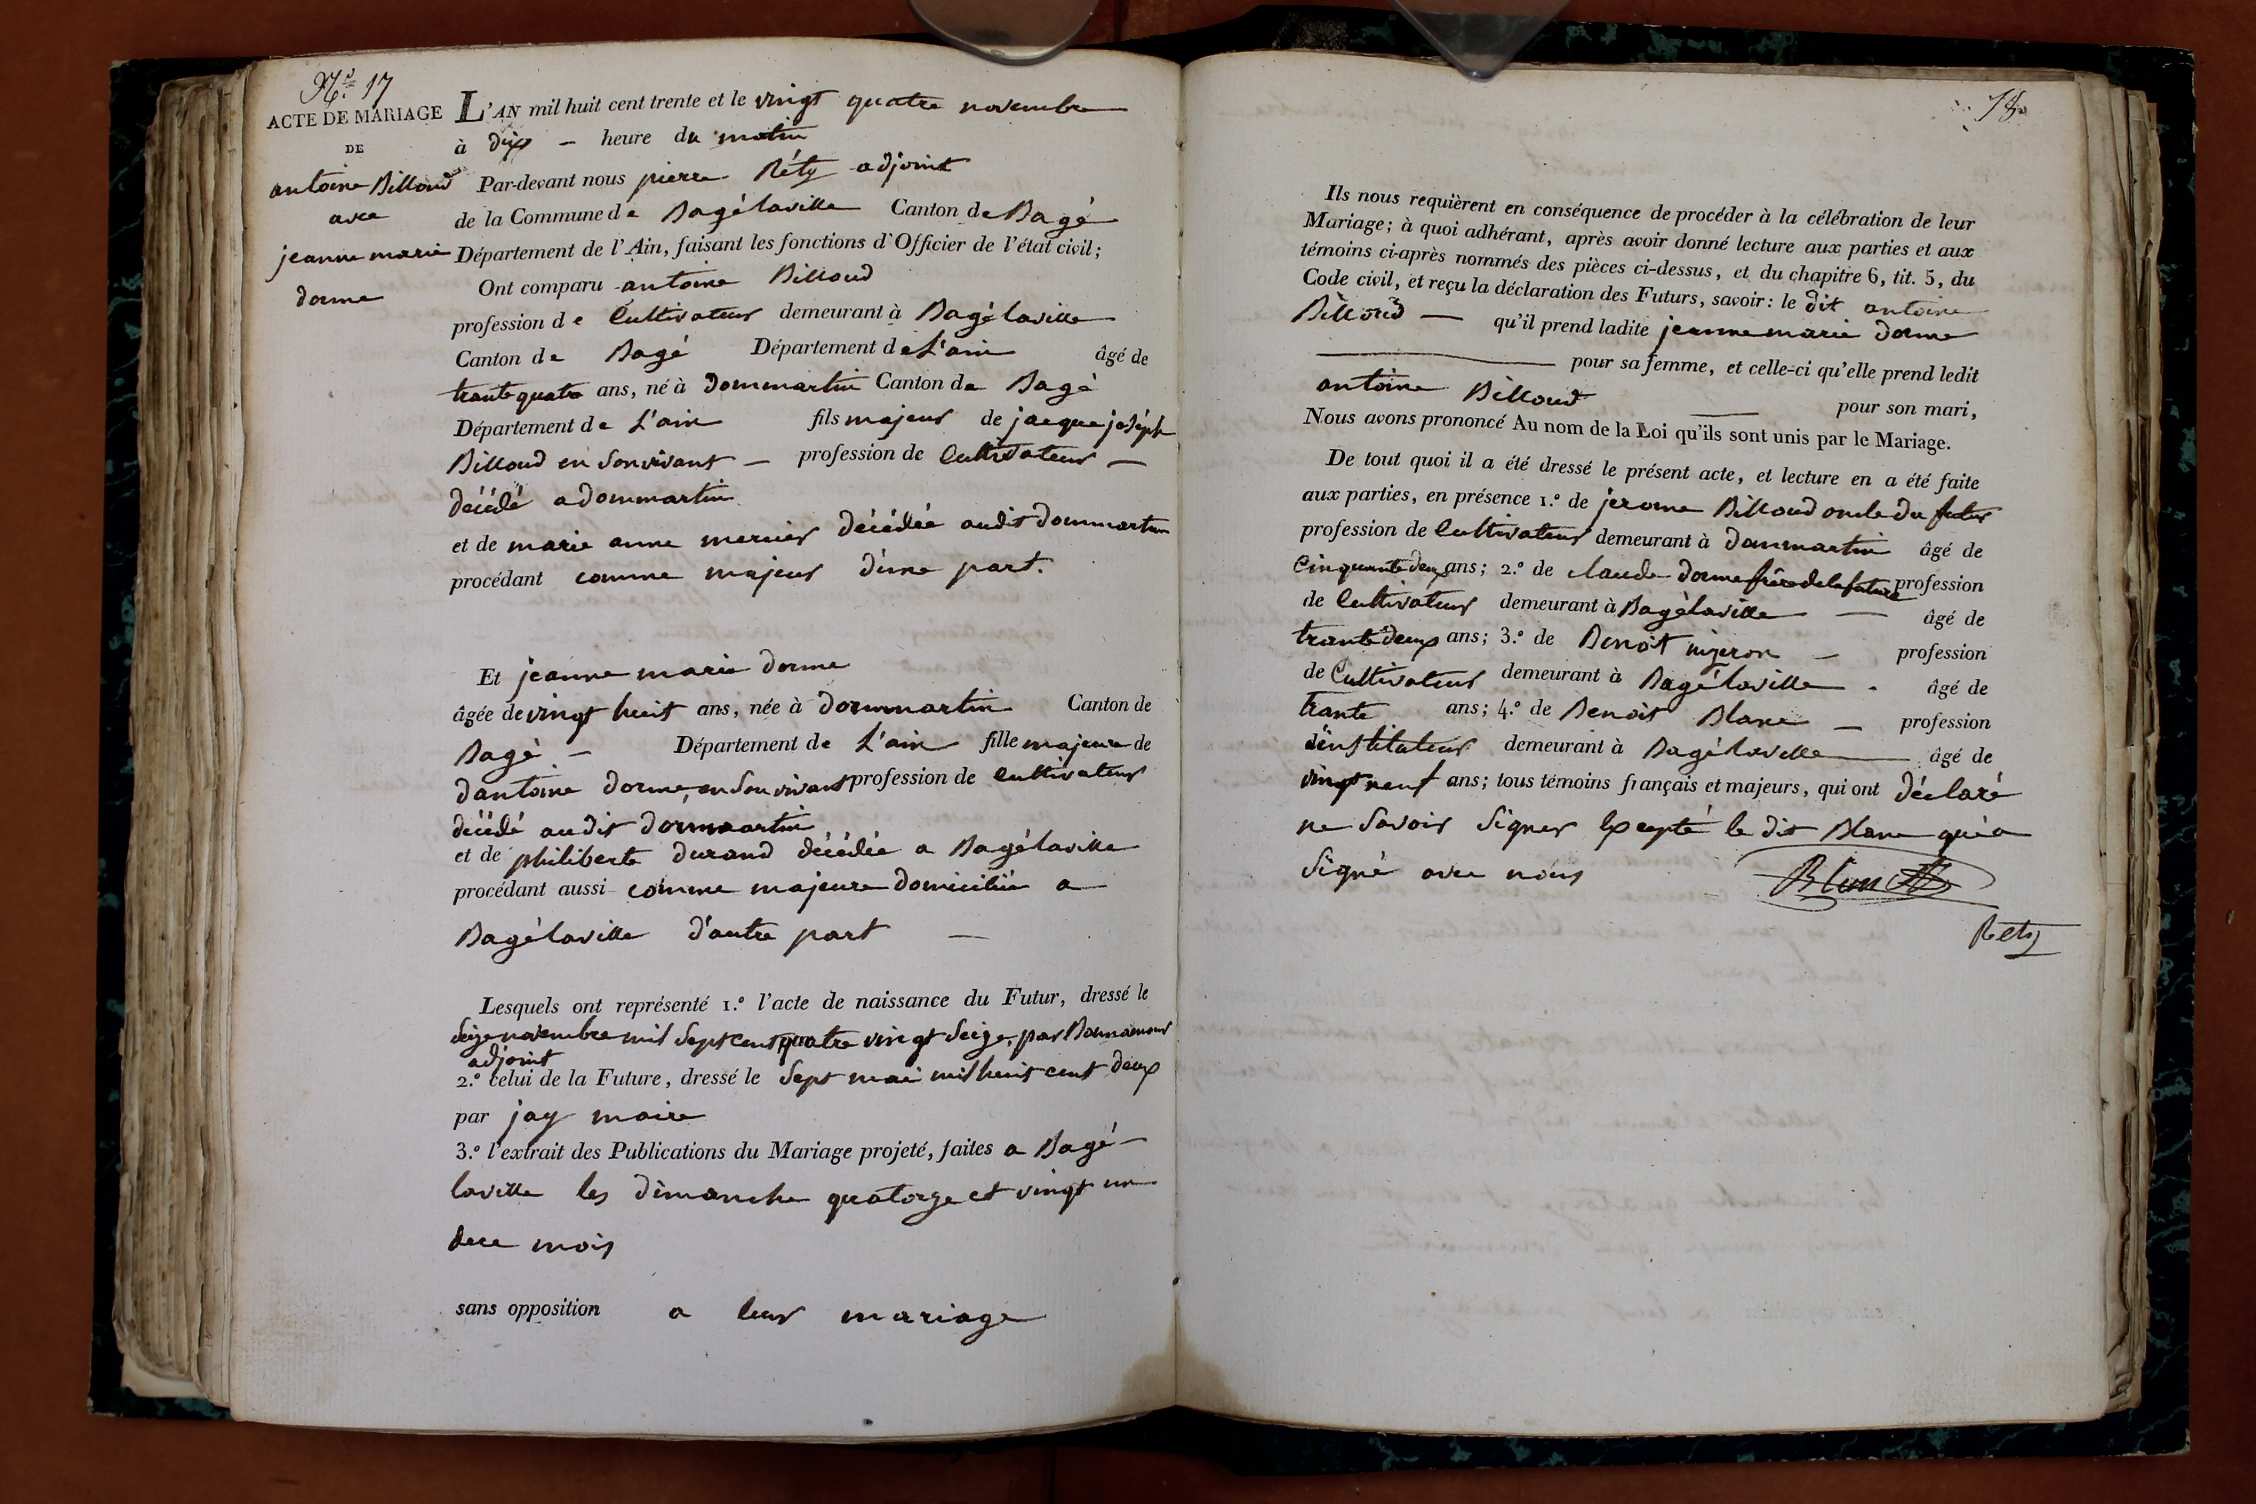 N.º 17
ACTE DE MARIAGE
DE
antoine Billoud
avec
jeanne marie
dorme
L'AN mil huit cent trente et le vingt quatre novembre
à dix - heure du matin
Par-devant nous pierre Réty adjoint
de la Commune de Bagélaville Canton de Bagé
Département de l'Ain, faisant les fonctions d'Officier de l'état civil;
Ont comparu antoine Billoud
profession de Cultivateur demeurant à Bagélaville
Canton de Bagé Département de L'ain âgé de
trante quatre ans, né à Dommartin Canton de Bagé
Département de L'ain fils majeur de jacque joséph
Billoud en Son vivant - profession de Cultivateur -
décédé a dommartin
et de marie anne mercier décédée audit dommartin
procédant comme majeur d'une part.
Et jeanne marie dorme
âgée de vingt huit ans, née à dommartin Canton de
Bagé - Département de L'ain fille majeure de
dantoine dorme, en Son vivant profession de Cultivateur
décédé au dit dommartin
et de philiberte durand décédée a Bagélaville
procédant aussi comme majeure domiciliée a
Bagélaville d'autre part -
Lesquels ont représenté 1.º l'acte de naissance du Futur, dressé le
Seize novembre mil Sept cent quatre vingt Seize, par Bonnamour
adjoint
2.º celui de la Future, dressé le Sept mai mil huit cent deux
par jay maire
3.º l'extrait des Publications du Mariage projeté, faites a Bagé-
laville les dimanche quatorze et vingt un
dece mois
sans opposition a leur mariage
78
Ils nous requièrent en conséquence de procéder à la célébration de leur
Mariage; à quoi adhérant, après avoir donné lecture aux parties et aux
témoins ci-après nommés des pièces ci-dessus, et du chapitre 6, tit. 5, du
Code civil, et reçu la déclaration des Futurs, savoir: le dit antoine
Billoud - qu'il prend ladite jeanne marie dorme
pour sa femme, et celle-ci qu'elle prend ledit
antoine Billoud pour son mari,
Nous avons prononcé Au nom de la Loi qu'ils sont unis par le Mariage.
De tout quoi il a été dressé le présent acte, et lecture en a été faite
aux parties, en présence 1.º de jerome Billoud oncle du futur
profession de Cultivateur demeurant à dommartin âgé de
Cinquante deux ans; 2.º de claude dorme frère de la future profession
de Cultivateur demeurant à Bagélaville - âgé de
trante deux ans; 3.º de Benoît - profession
de Cultivateur demeurant à Bagélaville - âgé de
trante ans; 4.º de Benoit Blanc - profession
d'instituteur demeurant à Bagélaville âgé de
vingt neuf ans; tous témoins français et majeurs, qui ont déclaré
ne Savoir Signer Excepté le dit Blanc qui a
Signé avec nous
Blanc
Rety